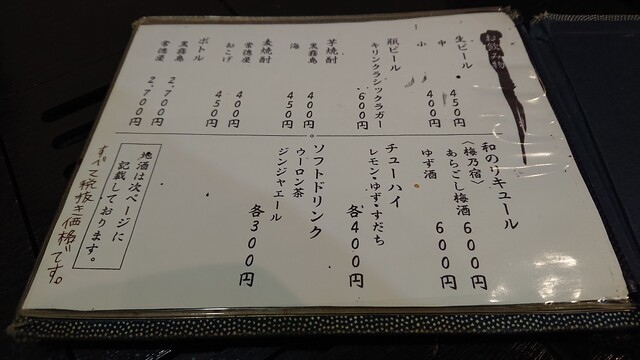 お飲み物
生ビール
中 450円
小 400円
瓶ビール
キリンクラシックラガー 600円
芋焼酎
黒霧島 400円
海 450円
麦焼酎
常徳屋 400円
おこげ 450円
ボトル
黒霧島 2,700円
常徳屋 2,700円
和のリキュール
〈梅乃宿〉
あらごし梅酒 600円
ゆず酒 600円
チューハイ
レモン・ゆず・すだち 各400円
ソフトドリンク
ウーロン茶
ジンジャエール 各300円
地酒は次ページに
記載しております。
すべて税抜き価格です。